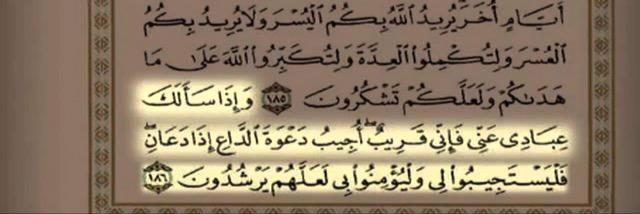 أَيَّامٍ أُخَرَ يُرِيدُ ٱللَّهُ بِكُمُ ٱلْيُسْرَ وَلَا يُرِيدُ بِكُمُ
ٱلْعُسْرَ وَلِتُكْمِلُوا۟ ٱلْعِدَّةَ وَلِتُكَبِّرُوا۟ ٱللَّهَ عَلَىٰ مَا
هَدَىٰكُمْ وَلَعَلَّكُمْ تَشْكُرُونَ ١٨٥ وَإِذَا سَأَلَكَ
عِبَادِى عَنِّى فَإِنِّى قَرِيبٌ ۖ أُجِيبُ دَعْوَةَ ٱلدَّاعِ إِذَا دَعَانِ ۖ
فَلْيَسْتَجِيبُوا۟ لِى وَلْيُؤْمِنُوا۟ بِى لَعَلَّهُمْ يَرْشُدُونَ ١٨٦